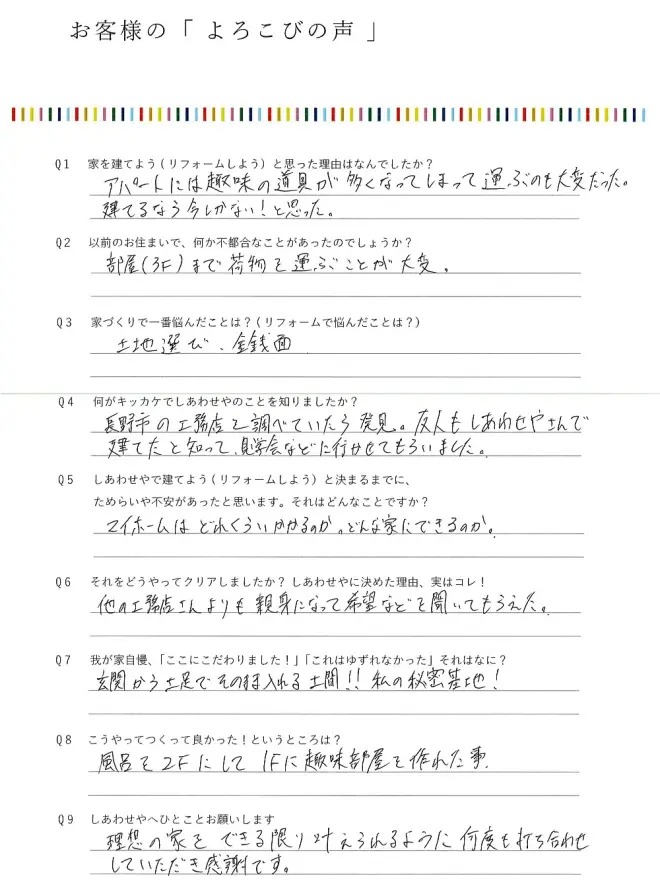 お客様の「よろこびの声」
Q1 家を建てよう(リフォームしよう)と思った理由はなんでしたか?
アパートには趣味の道具が多くなってしまって運ぶのも大変だった。
建てるなら今しかない!と思った。
Q2 以前のお住まいで、何か不都合なことがあったのでしょうか?
部屋(3F)まで荷物を運ぶことが大変。
Q3 家づくりで一番悩んだことは?(リフォームで悩んだことは?)
土地選び、金銭面
Q4 何がキッカケでしあわせやのことを知りましたか?
長野市の工務店を調べていたら発見。友人もしあわせやさんで
建てたと知って、見学会などに行かせてもらいました。
Q5 しあわせやで建てよう(リフォームしよう)と決まるまでに、
ためらいや不安があったと思います。それはどんなことですか?
マイホームはどれくらいかかるのか。どんな家にできるのか。
Q6 それをどうやってクリアしましたか? しあわせやに決めた理由、実はコレ!
他の工務店さんよりも親身になって希望などを聞いてもらえた。
Q7 我が家自慢、「ここにこだわりました!」「これはゆずれなかった」それはなに?
玄関から土足でそのまま入れる土間!!私の秘密基地!
Q8 こうやってつくって良かった!というところは?
風呂を2Fにして1Fに趣味部屋を作れた事。
Q9 しあわせやへひとことお願いします
理想の家をできる限り叶えられるように何度も打ち合わせ
していただき感謝です。